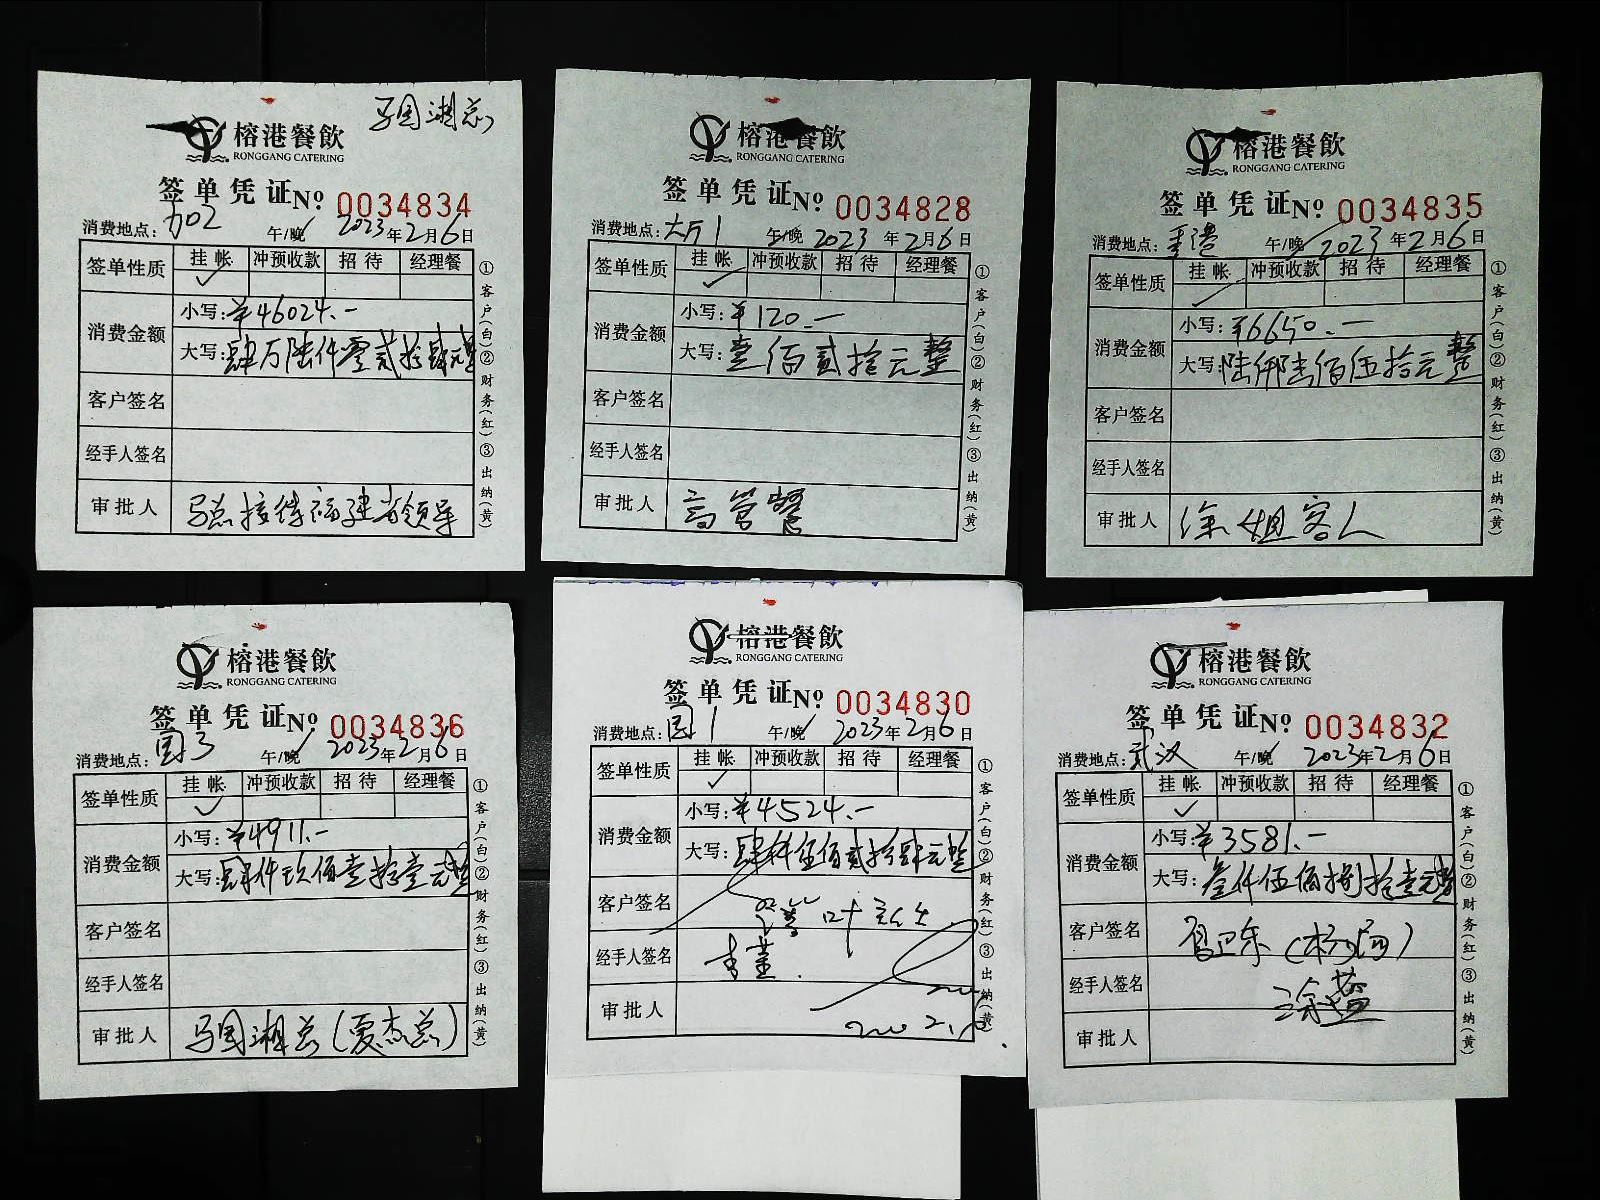 马国湘总
榕港餐飲
RONGGANG CATERING
签单凭证 No 0034834
消费地点: 加02 午/晚 2023年2月6日
签单性质 挂帐 冲预收款 招待 经理餐
✓
消费金额 小写: ¥46024.-
大写: 肆万陆仟零贰拾肆元整
客户签名
经手人签名
审批人 马总接待福建省领导
①客户(白)②财务(红)③出纳(黄)
榕港餐飲
RONGGANG CATERING
签单凭证 No 0034828
消费地点: 大厅1 午/晚 2023年2月6日
签单性质 挂帐 冲预收款 招待 经理餐
✓
消费金额 小写: ¥120.-
大写: 壹佰贰拾元整
客户签名
经手人签名
审批人 高管餐
①客户(白)②财务(红)③出纳(黄)
榕港餐飲
RONGGANG CATERING
签单凭证 No 0034835
消费地点: 午/晚 2023年2月6日
签单性质 挂帐 冲预收款 招待 经理餐
✓
消费金额 小写: ¥6650.-
大写: 陆仟陆佰伍拾元整
客户签名
经手人签名
审批人 徐姐客人
①客户(白)②财务(红)③出纳(黄)
榕港餐飲
RONGGANG CATERING
签单凭证 No 0034836
消费地点: 国3 午/晚 2023年2月6日
签单性质 挂帐 冲预收款 招待 经理餐
✓
消费金额 小写: ¥4911.-
大写: 肆仟玖佰壹拾壹元整
客户签名
经手人签名
审批人 马国湘总(夏杰总)
①客户(白)②财务(红)③出纳(黄)
榕港餐飲
RONGGANG CATERING
签单凭证 No 0034830
消费地点: 国1 午/晚 2023年2月6日
签单性质 挂帐 冲预收款 招待 经理餐
✓
消费金额 小写: ¥4524.-
大写: 肆仟伍佰贰拾肆元整
客户签名
经手人签名
审批人
①客户(白)②财务(红)③出纳(黄)
榕港餐飲
RONGGANG CATERING
签单凭证 No 0034832
消费地点: 武汉 午/晚 2023年2月6日
签单性质 挂帐 冲预收款 招待 经理餐
✓
消费金额 小写: ¥3581.-
大写: 叁仟伍佰捌拾壹元整
客户签名
经手人签名
审批人
①客户(白)②财务(红)③出纳(黄)